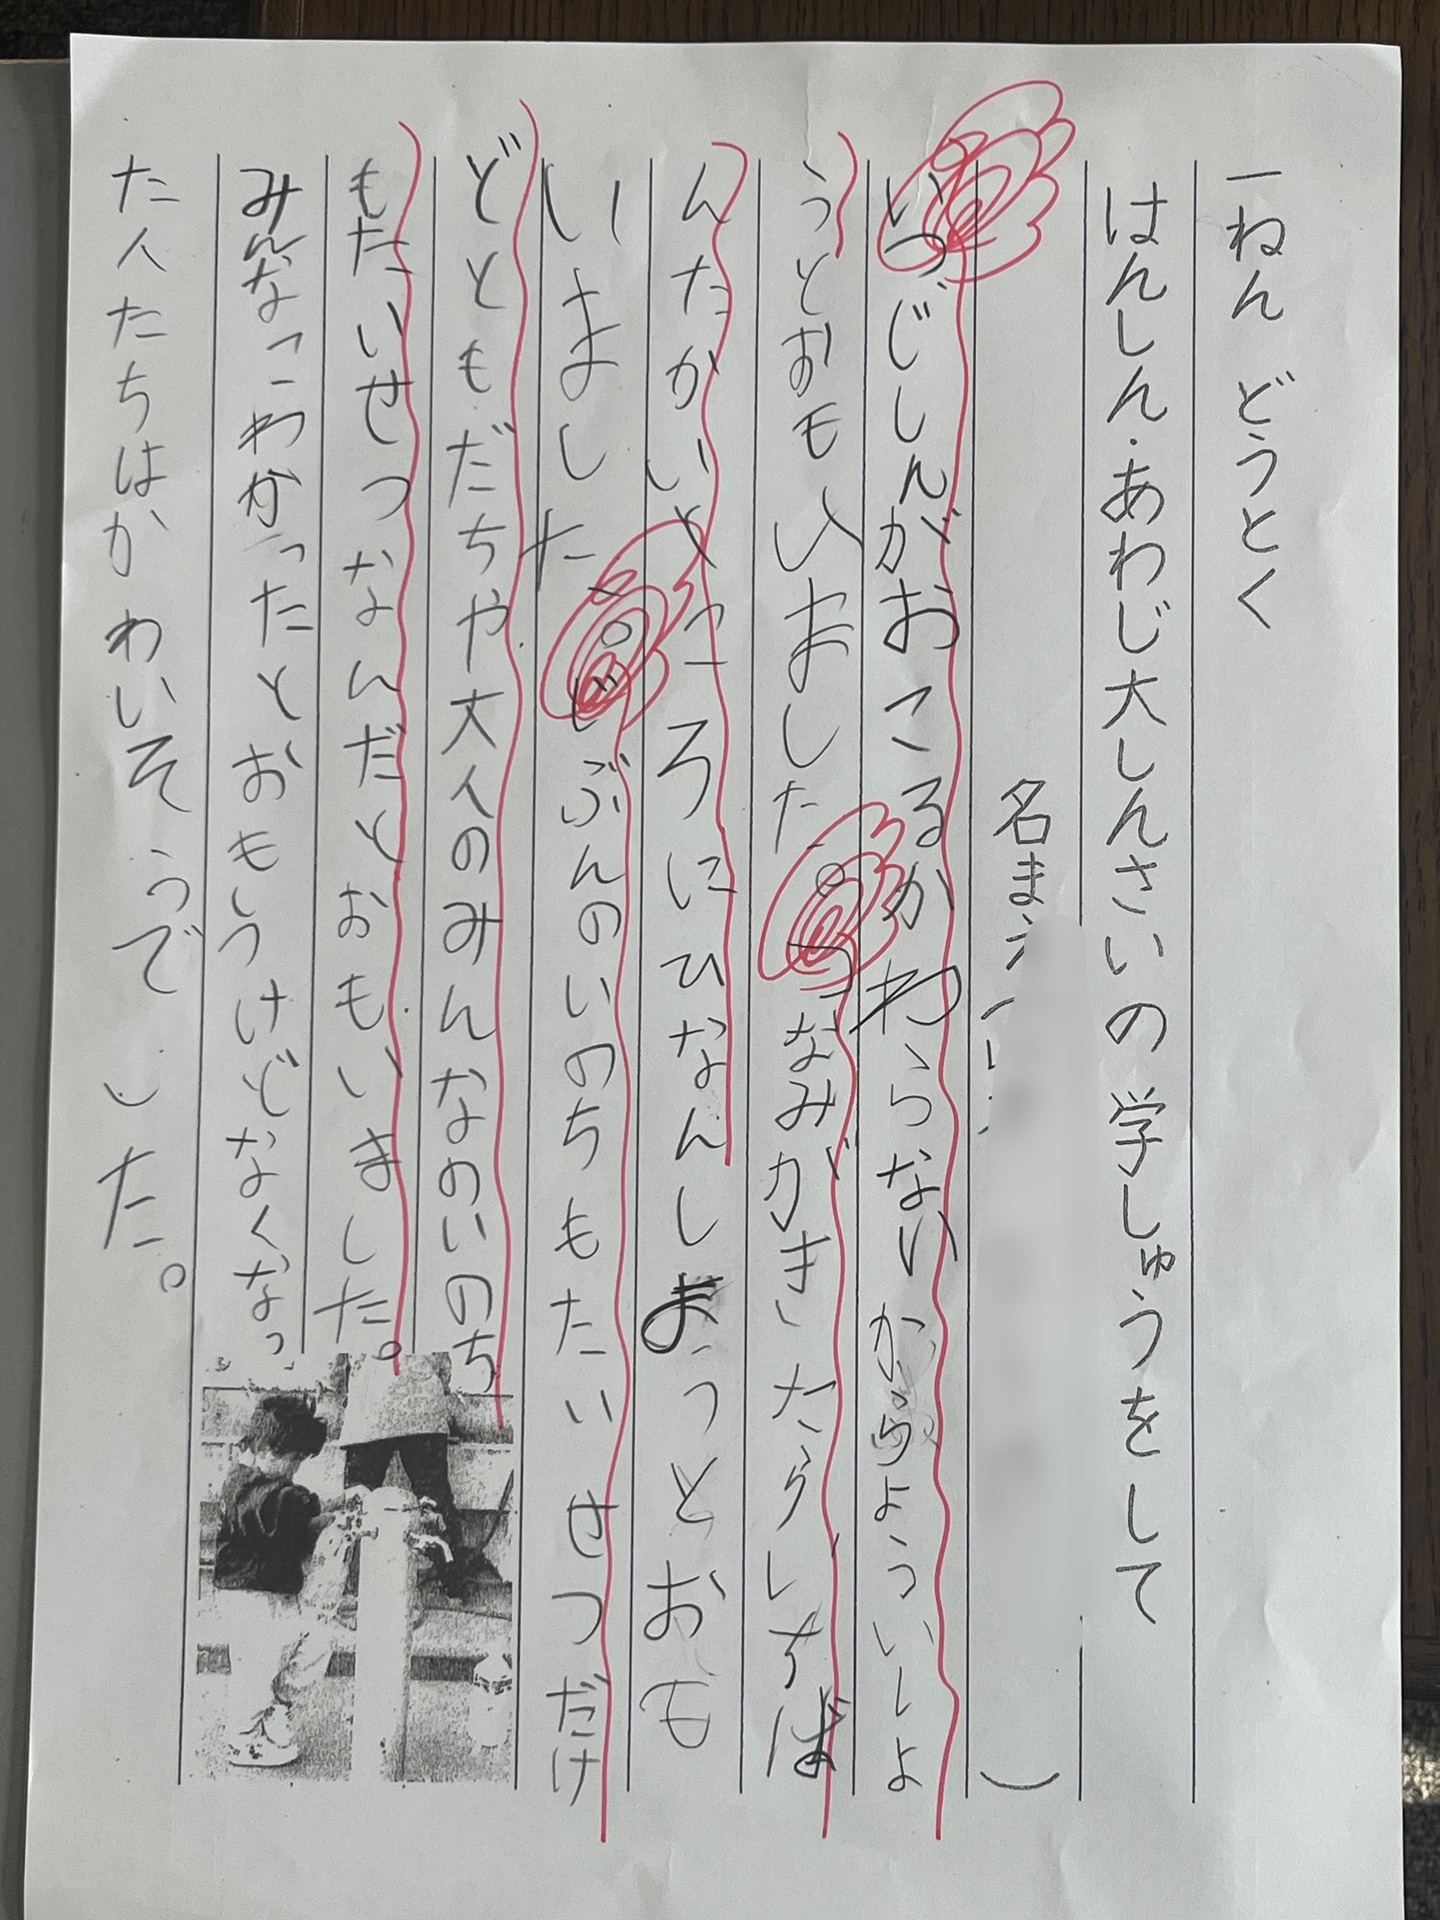 一ねん どうとく
はんしん・あわじ大しんさいの学しゅうをして
名まえ
いつじしんがおこるかわらないからよういしよ
うとおもいました。つなみがきたらいちば
んたかいところにひなんしまうとおも
いました。じぶんのいのちもたいせつだけ
どともだちや大人のみんなのいのち
もたいせつなんだとおもいました。
みんなこわかったとおもうけどなくなっ
た人たちはかわいそうでした。